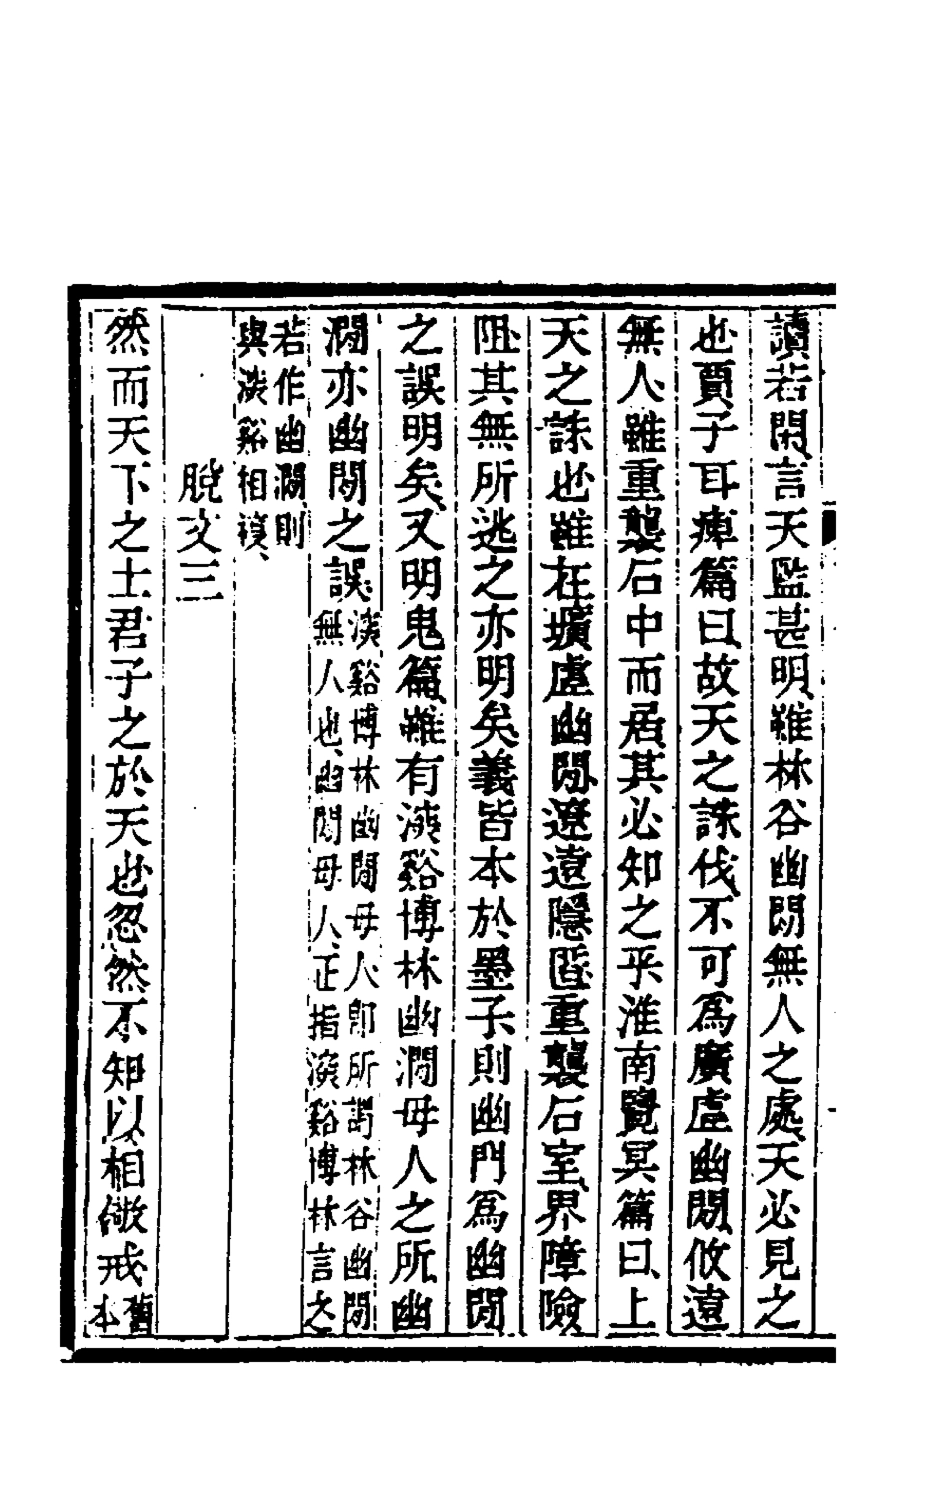 讀若閑言天監甚明雖林谷幽閒無人之處天必見之
也賈子耳痺篇曰故天之誅伐不可爲廣虛幽閒攸遠
無人雖重襲石中而居其必知之乎淮南覽冥篇曰上
天之誅也雖在壙虛幽閒遼遠隱匿重襲石室界障險
阻其無所逃之亦明矣義皆本於墨子則幽門爲幽閒
之誤明矣又明鬼篇雖有深谿博林幽澗毋人之所幽
澗亦幽閒之誤深谿博林幽閒毋人卽所謂林谷幽閒
無人也幽閒毋人正指深谿博林言之
若作幽澗則
與深谿相複
脫文三
然而天下之士君子之於天也忽然不知以相儆戒舊
本